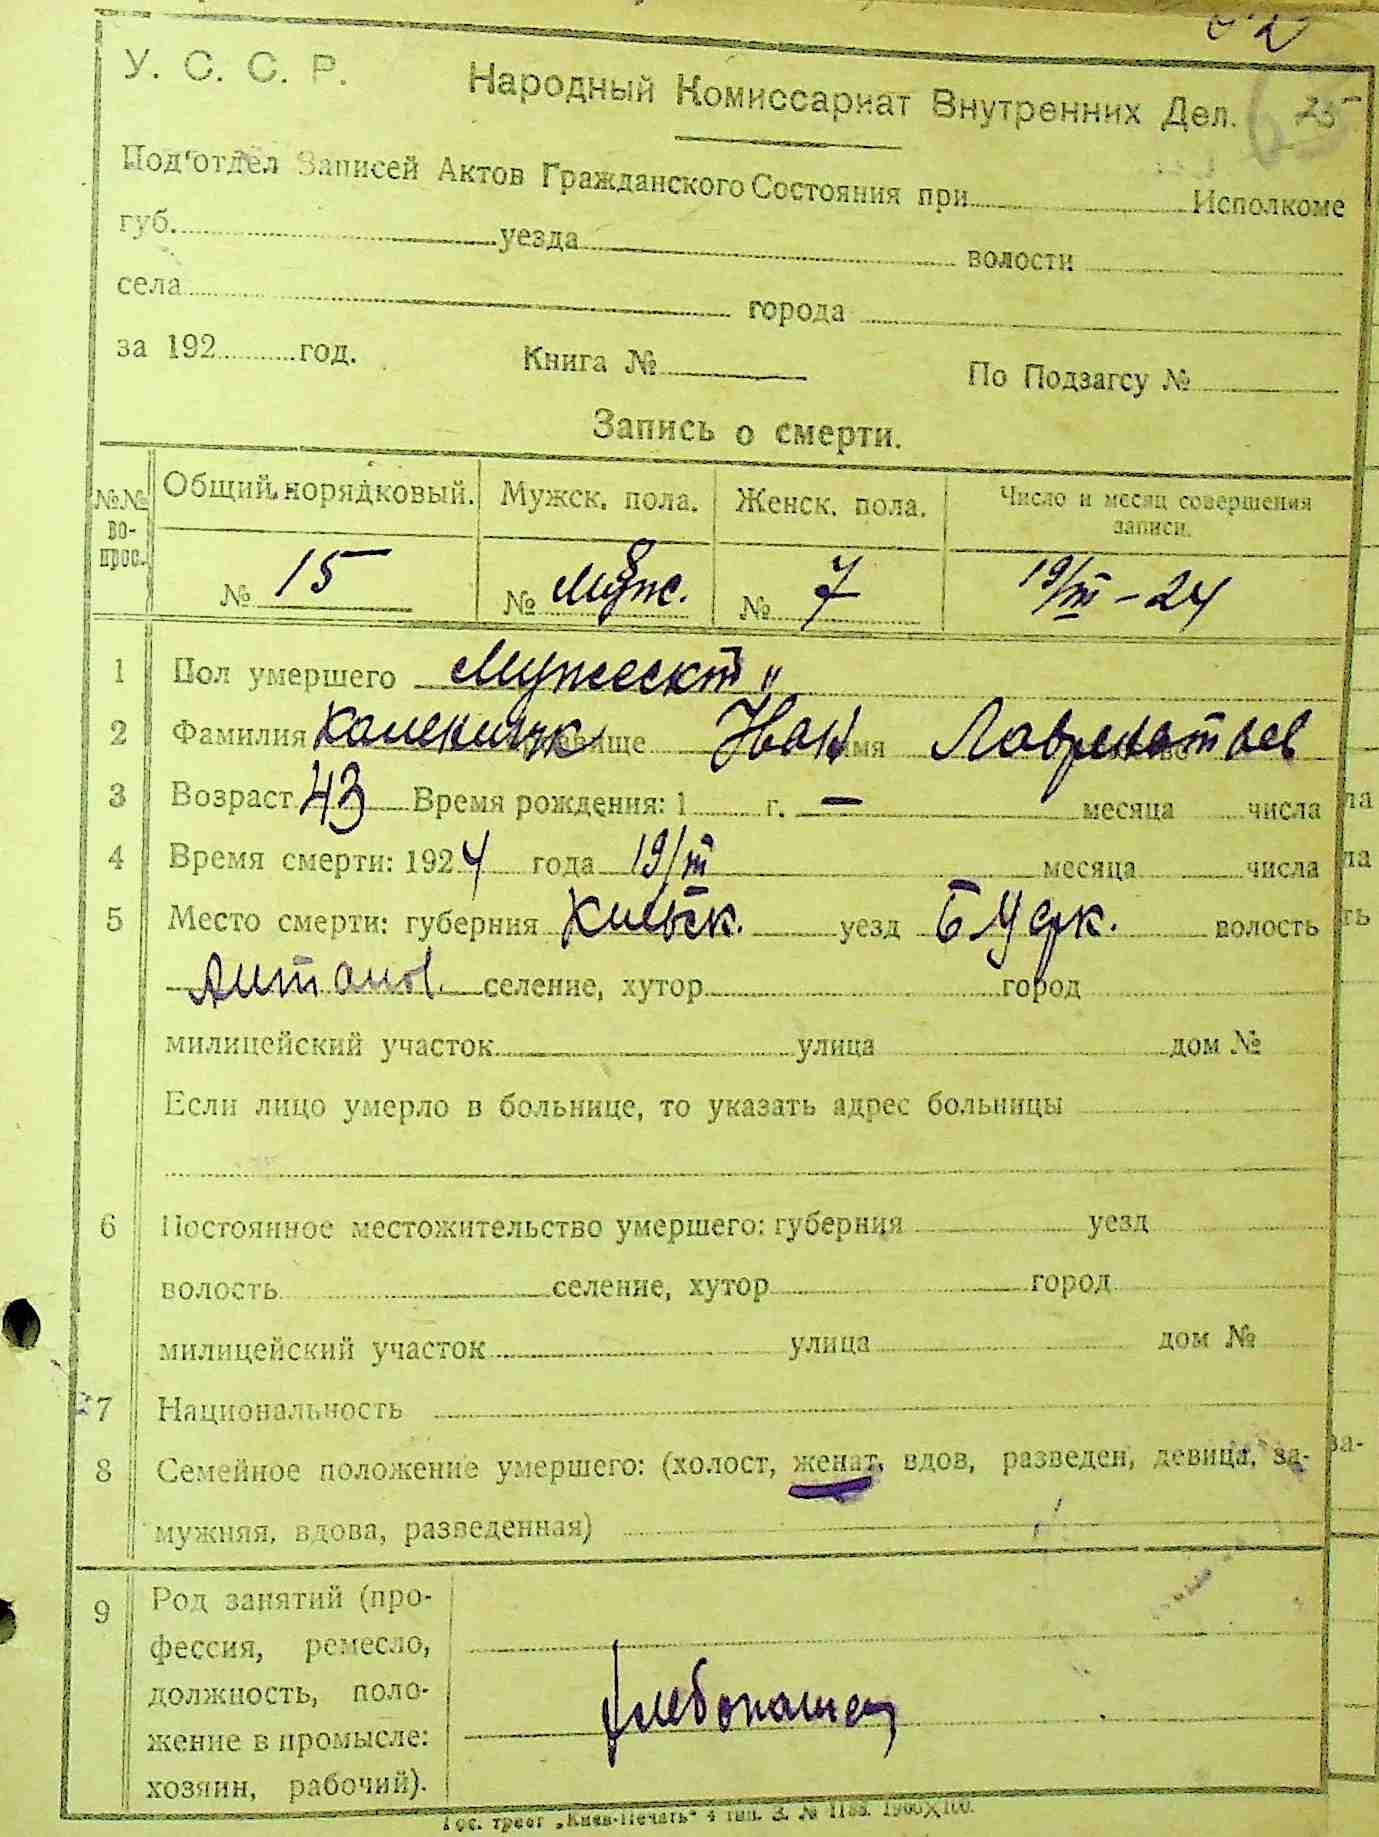 25
У. С. С. Р. Народный Комиссариат Внутренних Дел.
Под'отдел Записей Актов Гражданского Состояния при Исполкоме
губ. уезда волости
села города
за 192 год. Книга № По Подзагсу №
Запись о смерти.
№№ во- прос. Общий порядковый. Мужск. пола. Женск. пола. Число и месяц совершения записи.
№ 15 № 8 Муж. № 7 19/III – 24
1 Пол умершего Мужеск "
2 Фамилия Каленюк Иван имя Лаврентьев
3 Возраст 43 Время рождения: 1 г. – месяца числа
4 Время смерти: 1924 года 19/III месяца числа
5 Место смерти: губерния Киевск. уезд Б Церк. волость
Антонов. селение, хутор город
милицейский участок улица дом №
Если лицо умерло в больнице, то указать адрес больницы
6 Постоянное местожительство умершего: губерния уезд
волость селение, хутор город
милицейский участок улица дом №
7 Национальность
8 Семейное положение умершего: (холост, женат, вдов, разведен, девица, за-
мужняя, вдова, разведенная)
9 Род занятий (про-
фессия, ремесло,
должность, поло-
жение в промысле:
хозяин, рабочий).
хлебопашец
Гос. трест „Киев-Печать" 4 тип. З. № 1188. 1900X100.